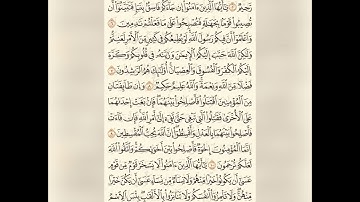 رَحِيمٌ ۝ يَٰٓأَيُّهَا ٱلَّذِينَ ءَامَنُوٓا۟ إِن جَآءَكُمْ فَاسِقٌۢ بِنَبَإٍ فَتَبَيَّنُوٓا۟ أَن
تُصِيبُوا۟ قَوْمًۢا بِجَهَٰلَةٍ فَتُصْبِحُوا۟ عَلَىٰ مَا فَعَلْتُمْ نَٰدِمِينَ ۝
وَٱعْلَمُوٓا۟ أَنَّ فِيكُمْ رَسُولَ ٱللَّهِ لَوْ يُطِيعُكُمْ فِى كَثِيرٍ مِّنَ ٱلْأَمْرِ لَعَنِتُّمْ
وَلَٰكِنَّ ٱللَّهَ حَبَّبَ إِلَيْكُمُ ٱلْإِيمَٰنَ وَزَيَّنَهُۥ فِى قُلُوبِكُمْ وَكَرَّهَ
إِلَيْكُمُ ٱلْكُفْرَ وَٱلْفُسُوقَ وَٱلْعِصْيَانَ أُو۟لَٰٓئِكَ هُمُ ٱلرَّٰشِدُونَ ۝
فَضْلًا مِّنَ ٱللَّهِ وَنِعْمَةً وَٱللَّهُ عَلِيمٌ حَكِيمٌ ۝ وَإِن طَآئِفَتَانِ
مِنَ ٱلْمُؤْمِنِينَ ٱقْتَتَلُوا۟ فَأَصْلِحُوا۟ بَيْنَهُمَا فَإِنۢ بَغَتْ إِحْدَىٰهُمَا
عَلَى ٱلْأُخْرَىٰ فَقَٰتِلُوا۟ ٱلَّتِى تَبْغِى حَتَّىٰ تَفِىٓءَ إِلَىٰٓ أَمْرِ ٱللَّهِ فَإِن فَآءَتْ
فَأَصْلِحُوا۟ بَيْنَهُمَا بِٱلْعَدْلِ وَأَقْسِطُوٓا۟ إِنَّ ٱللَّهَ يُحِبُّ ٱلْمُقْسِطِينَ ۝
إِنَّمَا ٱلْمُؤْمِنُونَ إِخْوَةٌ فَأَصْلِحُوا۟ بَيْنَ أَخَوَيْكُمْ وَٱتَّقُوا۟ ٱللَّهَ
لَعَلَّكُمْ تُرْحَمُونَ ۝ يَٰٓأَيُّهَا ٱلَّذِينَ ءَامَنُوا۟ لَا يَسْخَرْ قَوْمٌ مِّن قَوْمٍ
عَسَىٰٓ أَن يَكُونُوا۟ خَيْرًا مِّنْهُمْ وَلَا نِسَآءٌ مِّن نِّسَآءٍ عَسَىٰٓ أَن يَكُنَّ خَيْرًا
مِّنْهُنَّ وَلَا تَلْمِزُوٓا۟ أَنفُسَكُمْ وَلَا تَنَابَزُوا۟ بِٱلْأَلْقَٰبِ بِئْسَ ٱلِٱسْمُ